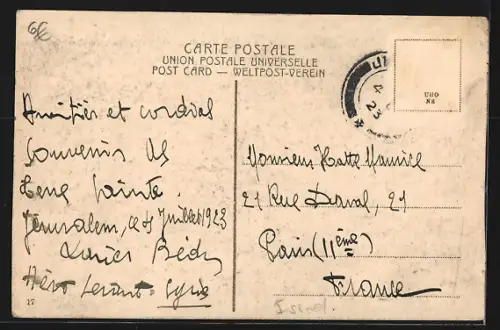 6€
CARTE POSTALE
UNION POSTALE UNIVERSELLE
POST CARD — WELTPOST-VEREIN
Amitiés et cordial
Souvenirs de
Terre Sainte.
Jérusalem, le 5 Juillet 1923
Syrie
17
23
Monsieur Hatte Maurice
21 Rue Derval, 21
Paris (11ème)
France